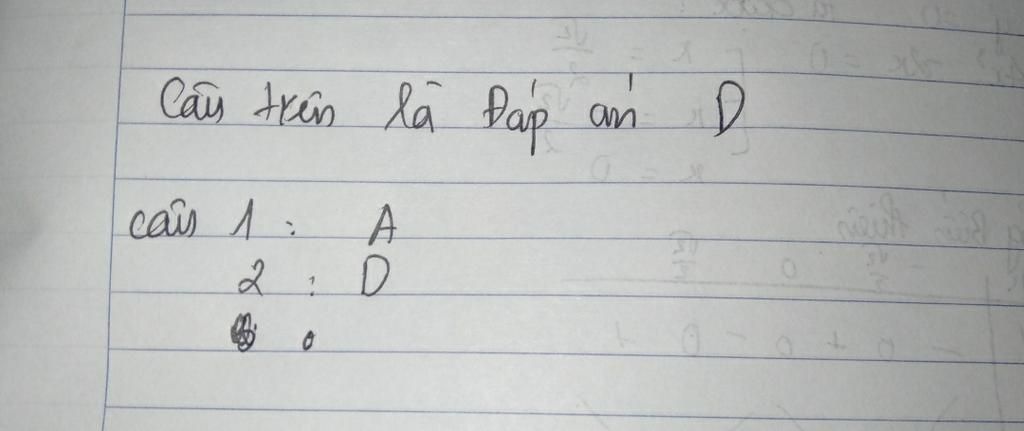 Câu trên là Đáp án D
câu 1 : A
2 : D